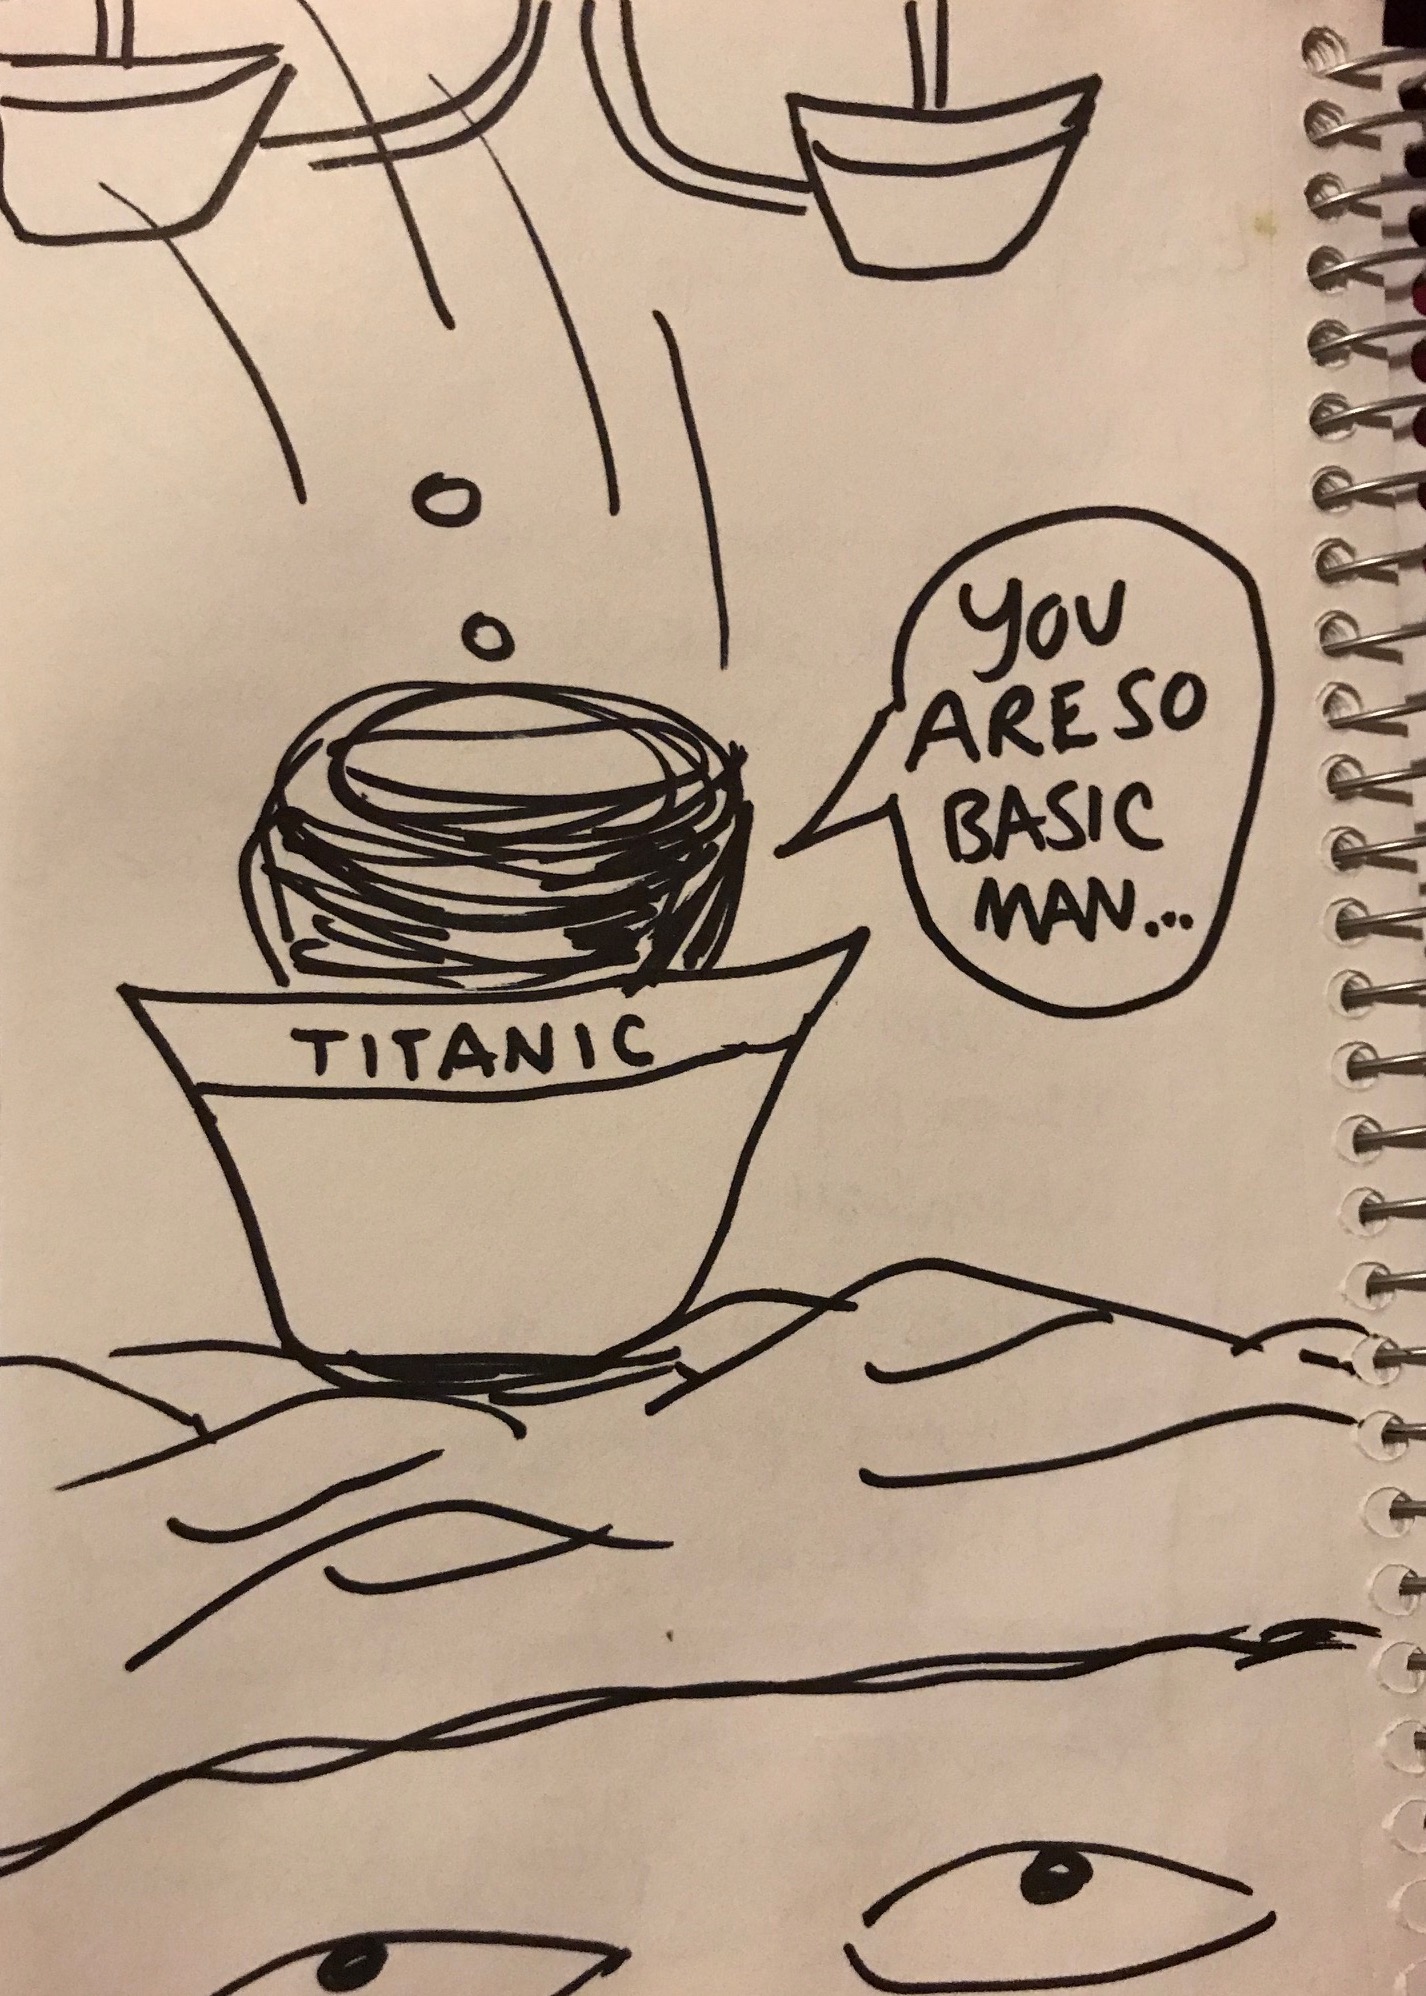 YOU
ARE SO
BASIC
MAN...
TITANIC